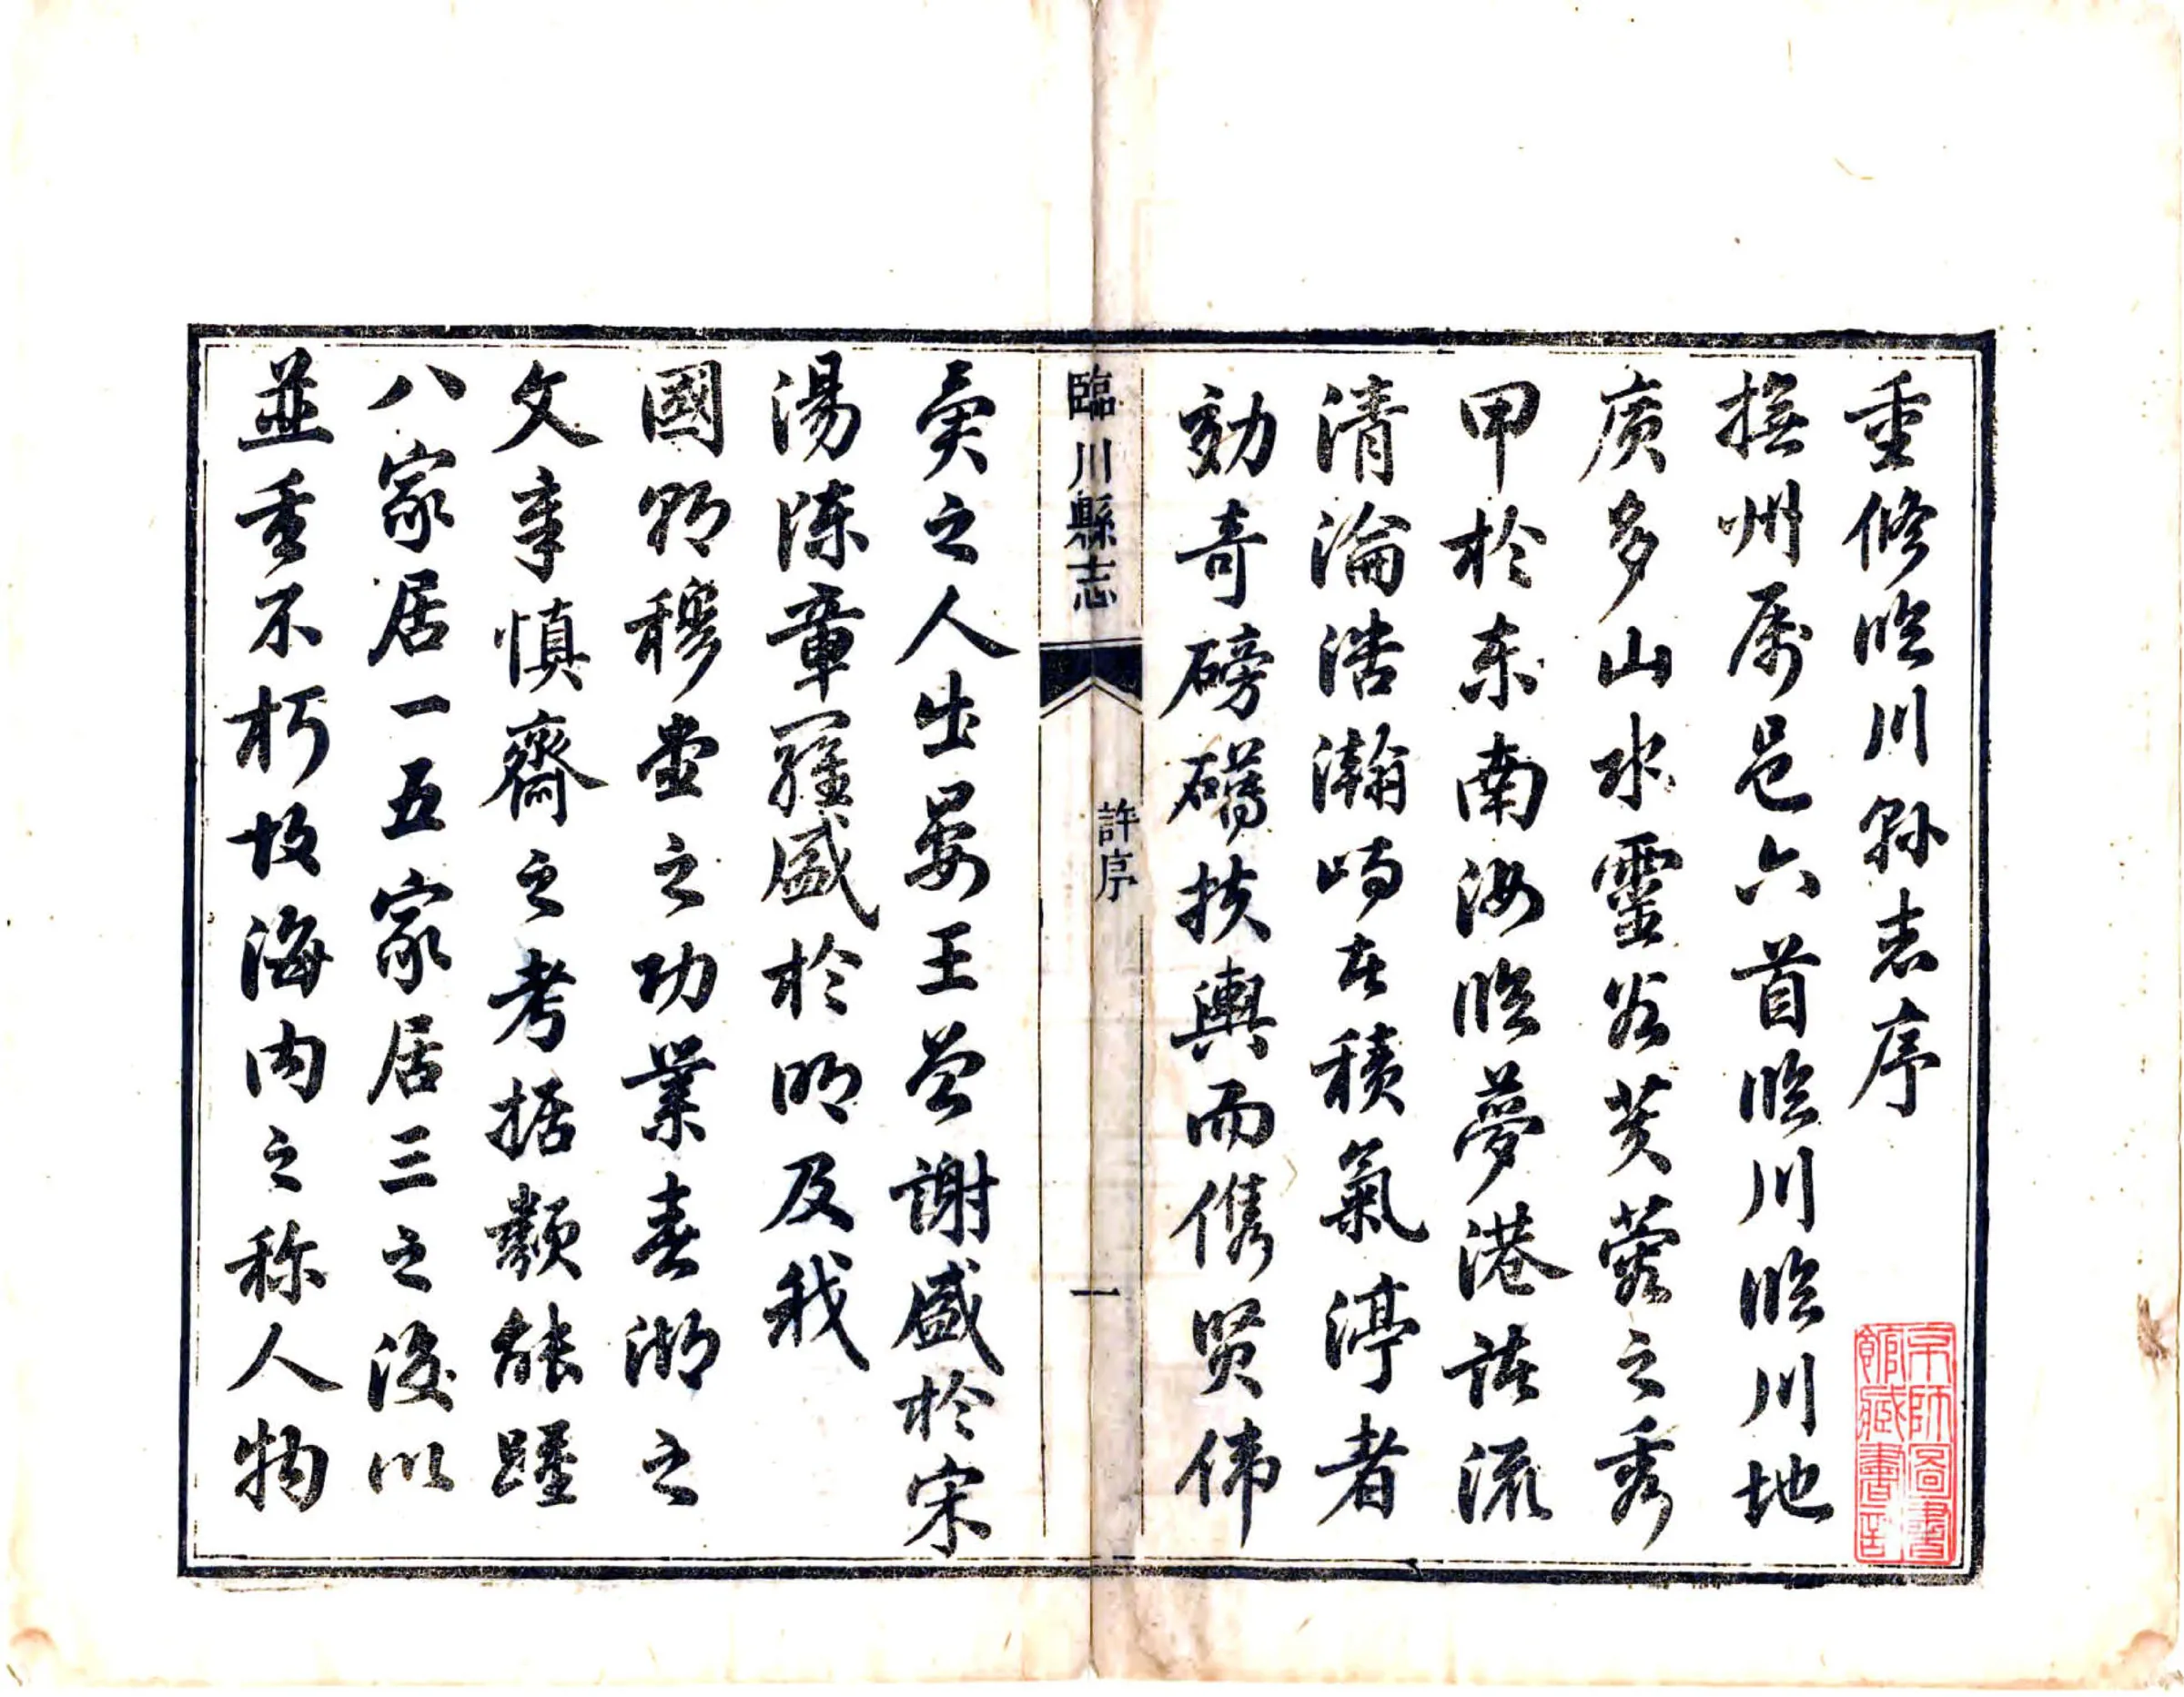 重修臨川縣志序
撫州屬邑六首臨川臨川地
廣多山水靈谷芙蓉之秀
甲於東南汝臨夢港諸流
清淪浩瀚峙在積氣渟者
効奇磅礴扶輿而儁賢偉
臨川縣志
許序
一
奭之人出晏王曾謝盛於宋
湯陳章羅盛於明及我
國朝穆堂之功業春湖之
文章慎齋之考據類能踵
八家居一五家居三之後以
並重不朽故海内之称人物
京師圖書
館藏書記